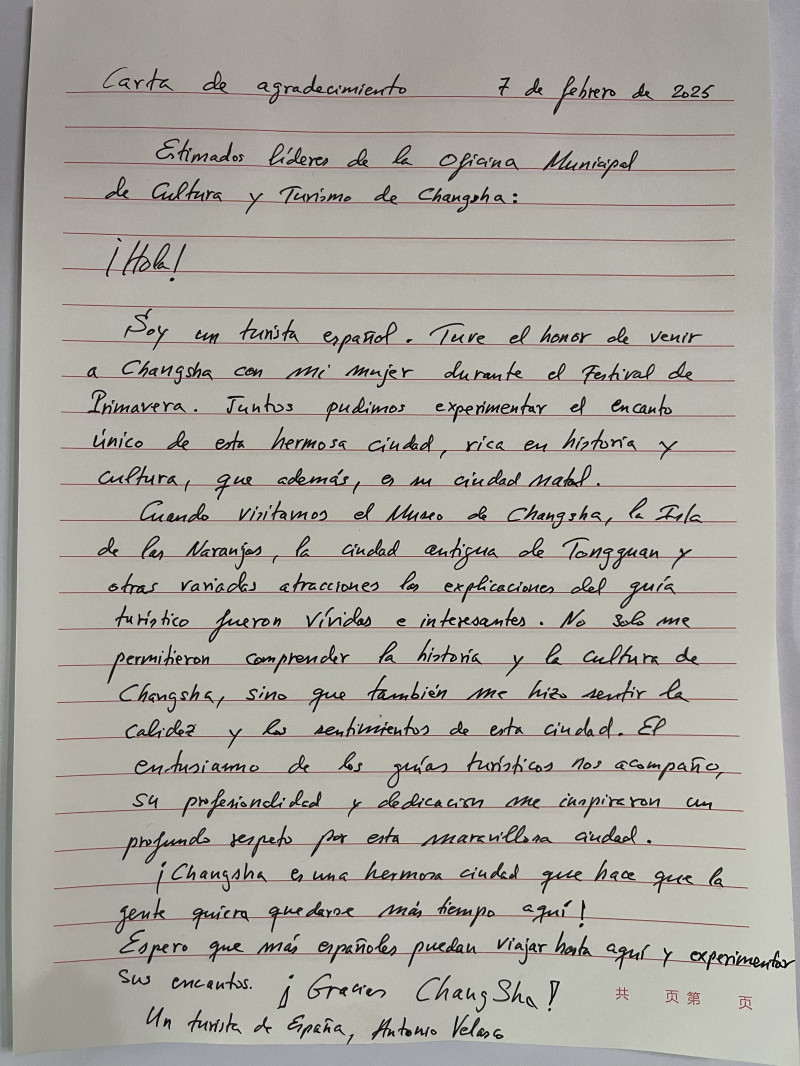 Carta de agradecimiento 7 de febrero de 2025
Estimados líderes de la Oficina Municipal
de Cultura y Turismo de Changsha:
¡Hola!
Soy un turista español. Tuve el honor de venir
a Changsha con mi mujer durante el Festival de
Primavera. Juntos pudimos experimentar el encanto
único de esta hermosa ciudad, rica en historia y
cultura, que además, es su ciudad natal.
Cuando visitamos el Museo de Changsha, la Isla
de las Naranjas, la ciudad antigua de Tongguan y
otras variadas atracciones las explicaciones del guía
turístico fueron vívidas e interesantes. No solo me
permitieron comprender la historia y la cultura de
Changsha, sino que también me hizo sentir la
calidez y los sentimientos de esta ciudad. El
entusiasmo de los guías turísticos nos acompaño,
su profesionalidad y dedicacion me inspiraron un
profundo respeto por esta maravillosa ciudad.
¡Changsha es una hermosa ciudad que hace que la
gente quiera quedarse más tiempo aquí!
Espero que más españoles puedan viajar hasta aquí y experimentar
sus encantos. ¡Gracias ChangSha!
共 页 第 页
Un turista de España, Antonio Velasco